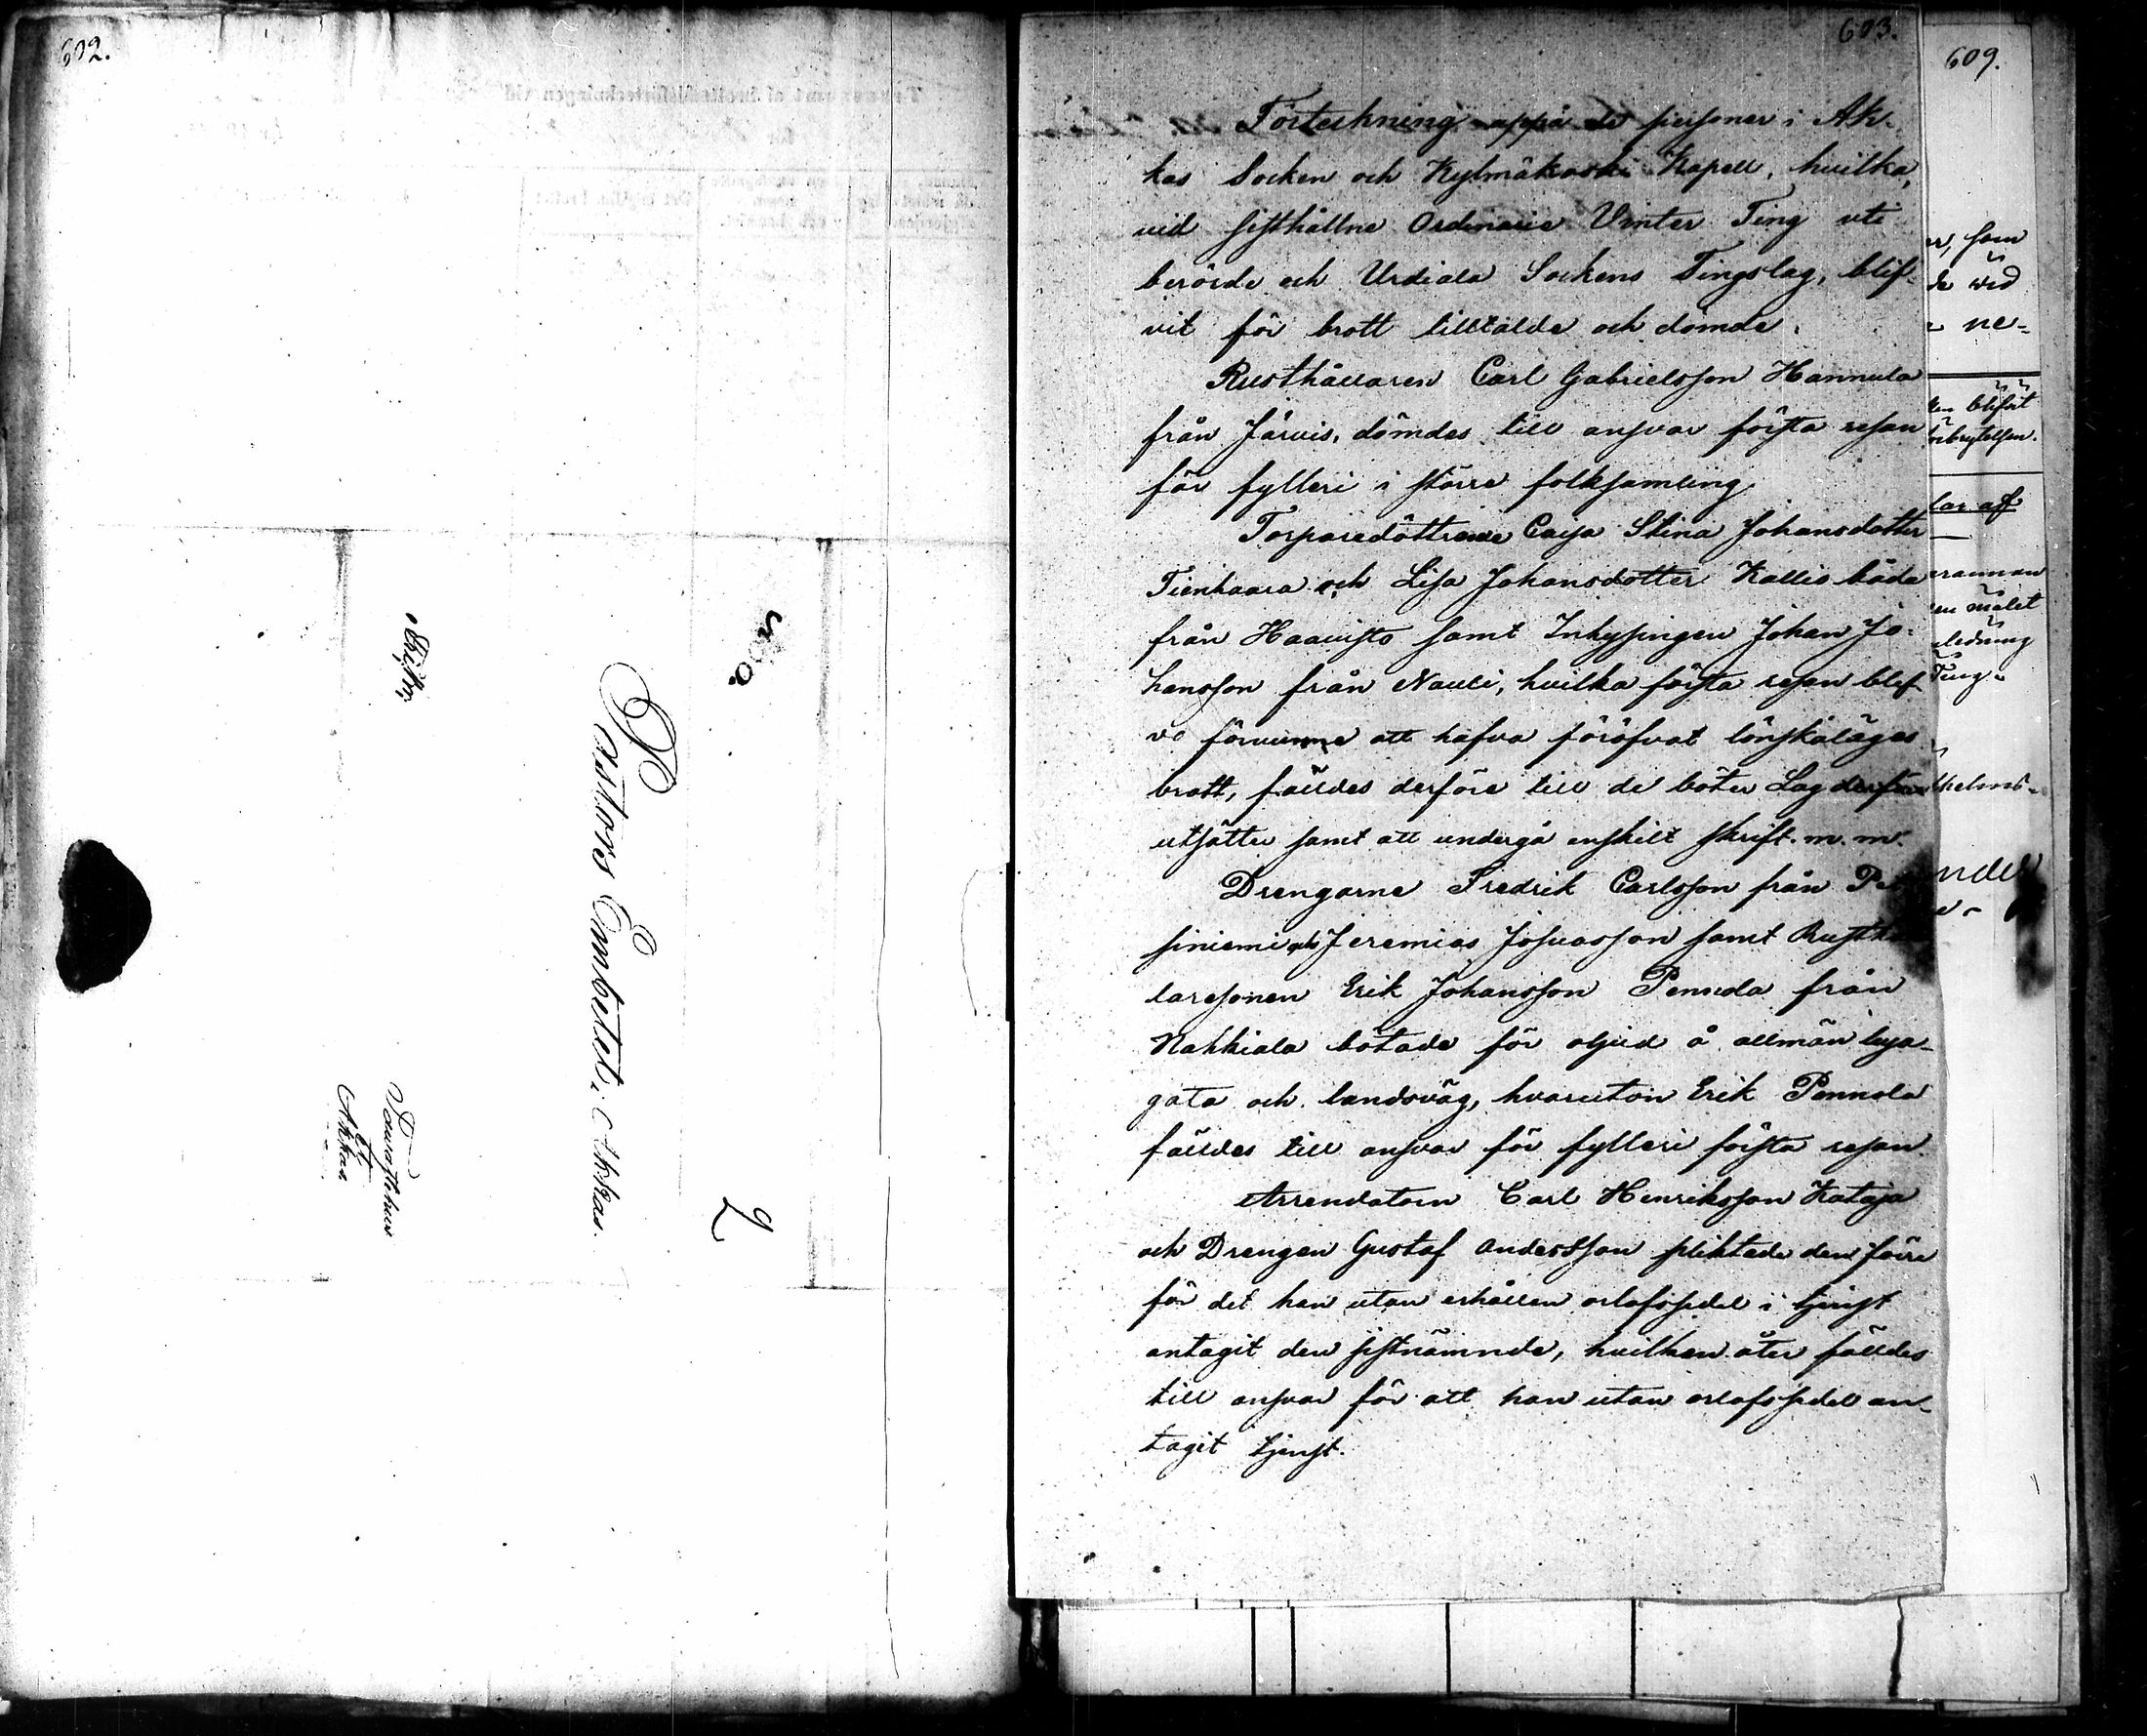 602.
Pastors Embetet i Akkas.
Tavastehus
Akkas
603.
Förteckning uppå de personer i Ak-
kas Socken och Kylmäkoski Kapell, hvilka,
vid sisthållne Ordinarie Vinter Ting uti
berörde och Urdiala Sockens Tingslag, blif-
vit för brott tilltalde och dömde.
Rusthållaren Carl Gabrielsson Hannula
från Järvis, dömdes till ansvar första resan
för fylleri i större folksamling.
Torparedöttrarne Caisa Stina Johansdotter
Tienhaara och Lisa Johansdotter Kallis båda
från Haavisto samt Inhysingen Johan Jo-
hansson från Nauli, hvilka första resan blef-
vo förvunne att hafva föröfvat lönskaläges
brott, fälldes derföre till de böter Lag derför
utsätter samt att undergå enskilt skrift. m. m.
Drengarne Fredrik Carlsson från
siniemi och Jeremias Josuasson samt Rusthål-
laresonen Erik Johansson Pennola från
Nahkiala bötade för oljud å allmän bya-
gata och landsväg, hvarutom Erik Pennola
fälldes till ansvar för fylleri första resan.
Arrendatorn Carl Henriksson Kataja
och Drengen Gustaf Andersson pliktade den förre
för det han utan erhållen orlofssedel i tjenst
antagit den sistnämnde, hvilken åter fälldes
till ansvar för att han utan orlofssedel an-
tagit tjenst.
609.
som
wid
ne-
blifvit
förbrytelsen.
af
målet
ledning
Ting